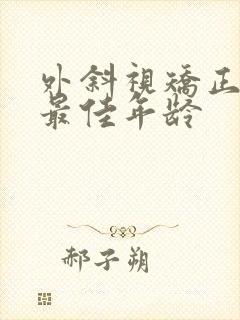 外斜視矯正
最佳年龄
郝子朔